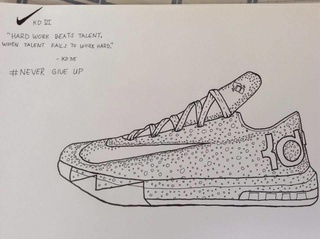 KD VI
"HARD WORK BEATS TALENT,
WHEN TALENT FAILS TO WORK HARD."
- KD 35
#NEVER GIVE UP
KD